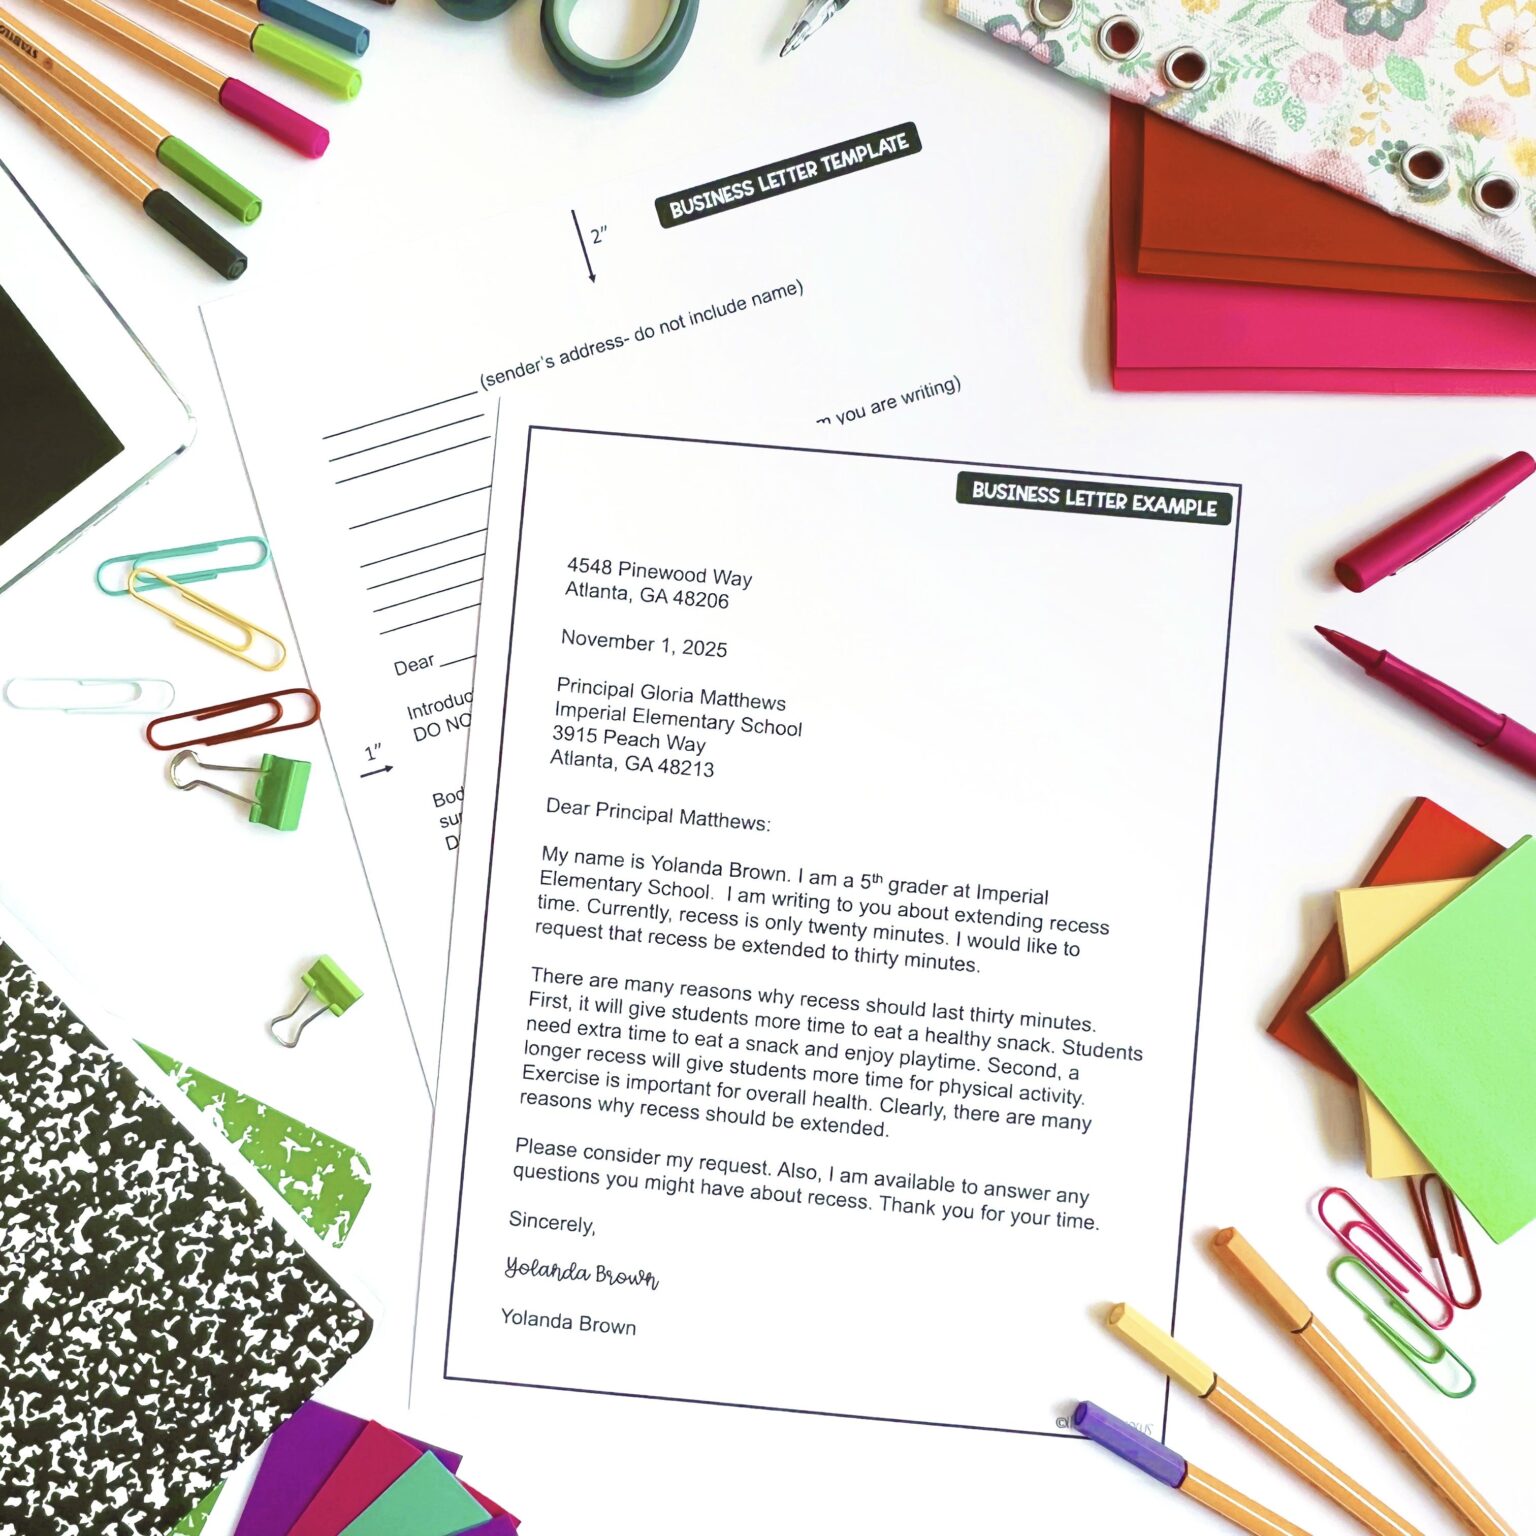 STABILO
BUSINESS LETTER TEMPLATE
2"
(sender's address- do not include name)
you are writing)
Dear
DO
1"
BUSINESS LETTER EXAMPLE
4548 Pinewood Way
Atlanta, GA 48206
November 1, 2025
Principal Gloria Matthews
Imperial Elementary School
3915 Peach Way
Atlanta, GA 48213
Dear Principal Matthews:
My name is Yolanda Brown. I am a 5th grader at Imperial
Elementary School.  I am writing to you about extending recess
time. Currently, recess is only twenty minutes. I would like to
request that recess be extended to thirty minutes.
There are many reasons why recess should last thirty minutes.
First, it will give students more time to eat a healthy snack. Students
need extra time to eat a snack and enjoy playtime. Second, a
longer recess will give students more time for physical activity.
Exercise is important for overall health. Clearly, there are many
reasons why recess should be extended.
Please consider my request. Also, I am available to answer any
questions you might have about recess. Thank you for your time.
Sincerely,
Yolanda Brown
Yolanda Brown